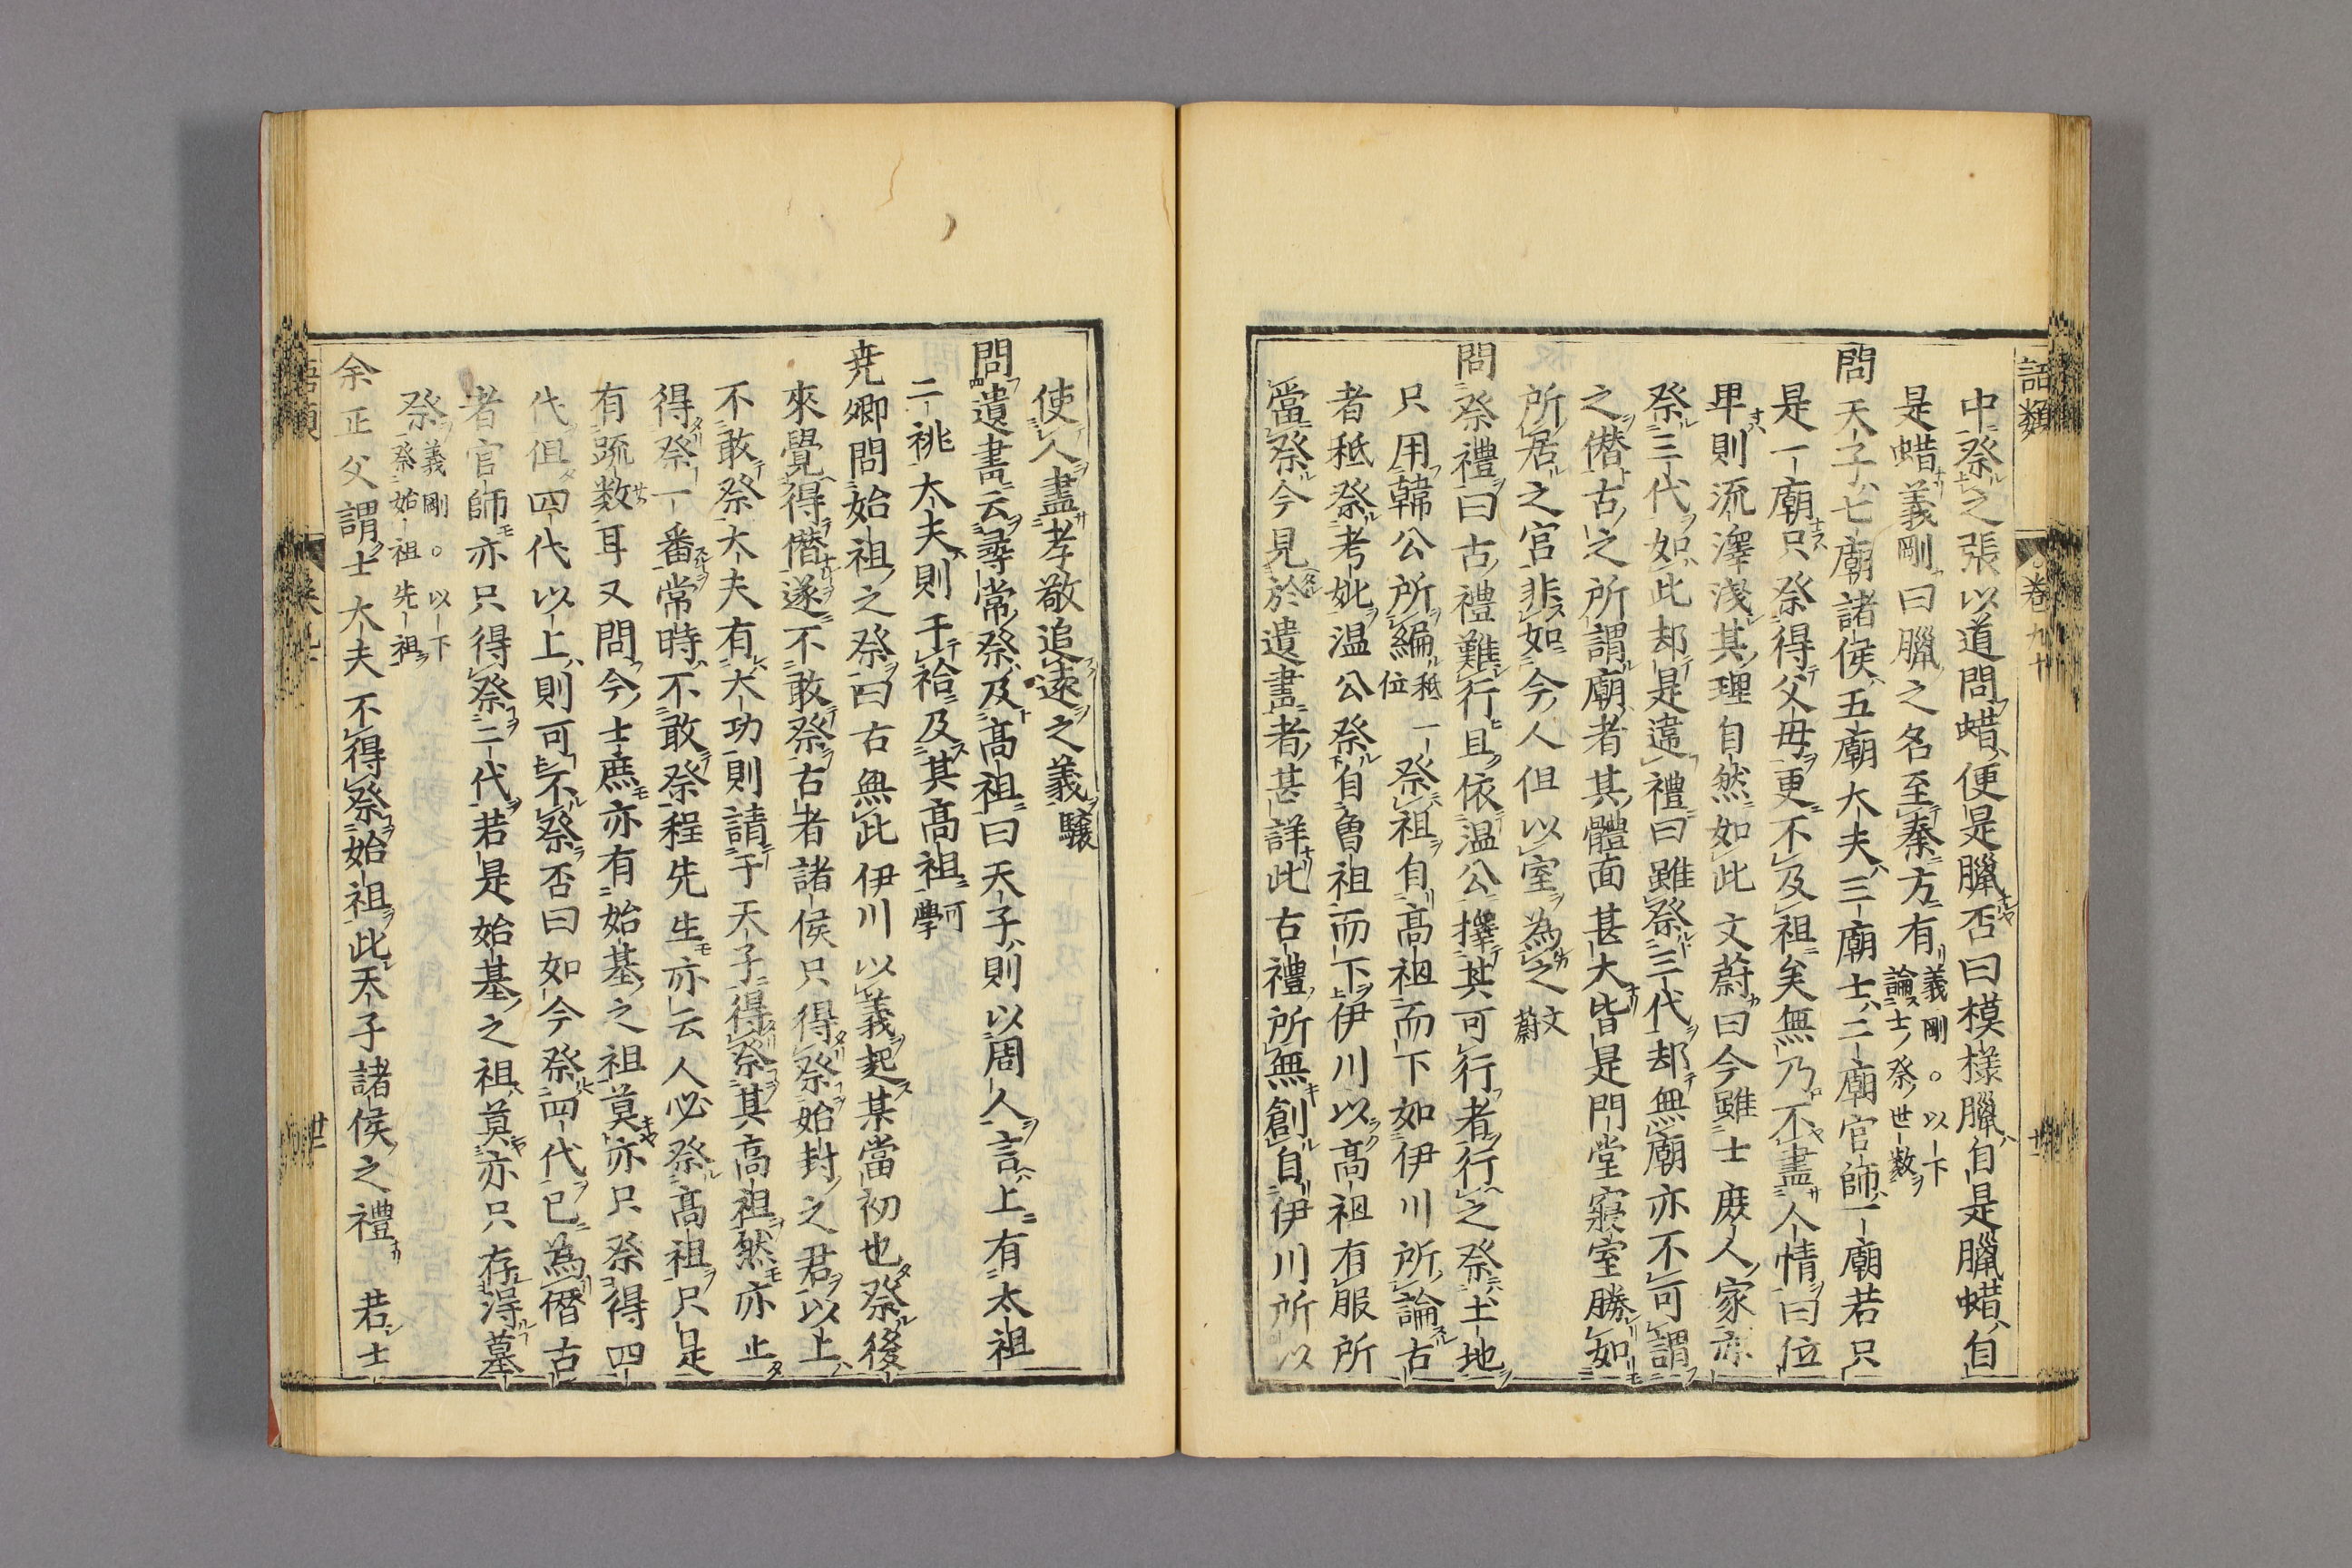 語類 卷九十
中祭之張以道問蜡便是臘否曰模樣臘自是臘蜡自
是蜡義剛曰臘之名至秦方有義剛○以下論士祭世数
問天子七廟諸侯五廟大夫三廟士二廟官師一廟若只
是一廟只祭得父母更不及祖矣無乃不盡人情曰位
卑則流澤淺其理自然如此文蔚曰今雖士庶人家亦
祭三代如此却是違禮曰雖祭三代却無廟亦不可謂
之僭古之所謂廟者其體面甚大皆是門堂寢室勝如
所居之官非如今人但以室為之文蔚
問祭禮曰古禮難行且依温公擇其可行者行之祭土地
只用韓公所編秪一位祭祖自高祖而下如伊川所論古
者秪祭考妣温公祭自曽祖而下伊川以高祖有服所
當祭今見於遺書者甚詳此古禮所無創自伊川所以
使人盡孝敬追遠之義驤
問遺書云尋常祭及高祖曰天子則以周人言上有太祖
二祧大夫則于祫及其高祖可學
尭卿問始祖之祭曰古無此伊川以義起某當初也祭後
來覺得僭遂不敢祭古者諸侯只得祭始封之君以上
不敢祭大夫有大功則請于天子得祭其高祖然亦止
得祭一番常時不敢祭程先生亦云人必祭高祖只是
有疏数耳又問今士庶亦有始基之祖莫亦只祭得四
代但四代以上則可不祭否曰如今祭四代已為僭古
者官師亦只得祭二代若是始基之祖莫亦只存得墓
祭義剛○以下祭始祖先祖
余正父謂士大夫不得祭始祖此天子諸侯之禮若士